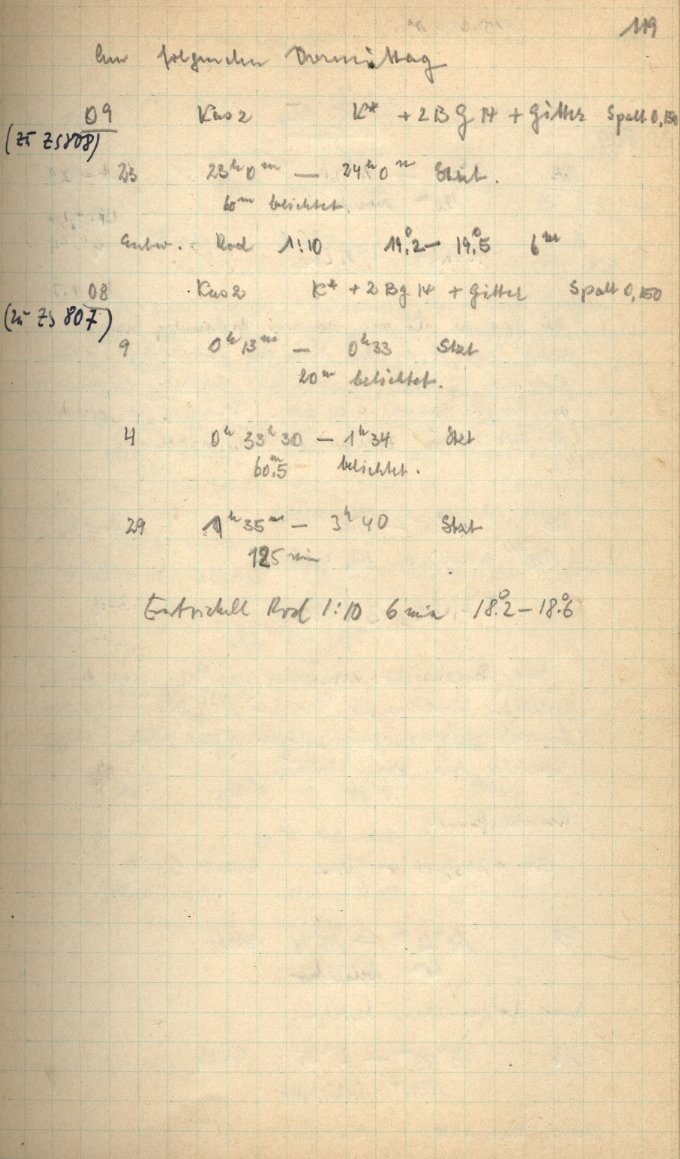 119
Am folgenden Vormittag
09 Kas 2 K* + 2 Bg H + Gitter Spalt 0,150
(zu ZS 808)
23 23ʰ0ᵐ — 24ʰ0ᵐ
60ᵐ belichtet.
Entw. Rod 1:10 19°.2 — 19°.5 6ᵐ
08 Kas 2 K* + 2 Bg H + Gitter Spalt 0,150
(zu ZS 807)
9 0ʰ13ᵐ — 0ʰ33
20ᵐ belichtet.
4 0ʰ 33ʰ30 — 1ʰ34
60ᵐ.5 belichtet.
29 1ʰ35ᵐ — 3ʰ40
125 min
Entwickelt Rod 1:10 6 min 18°.2 — 18°.6